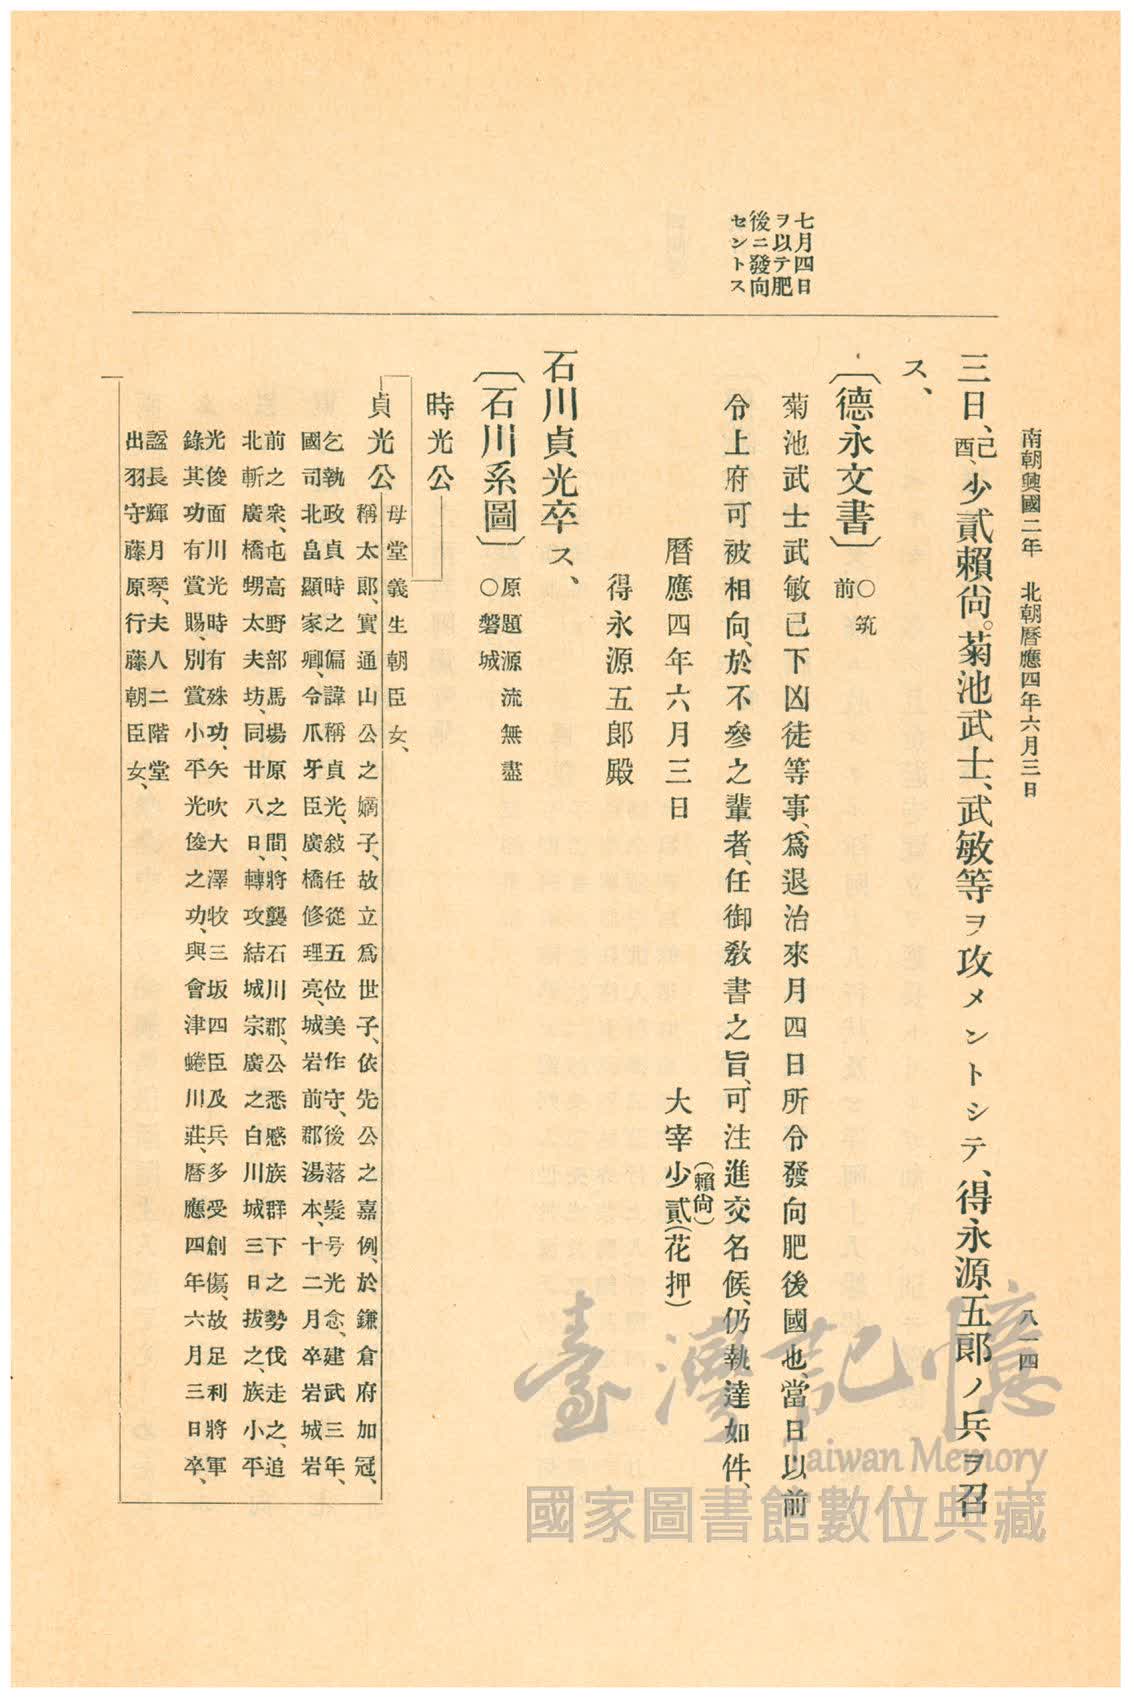 南朝興國二年 北朝曆應四年六月三日 八一四
七月四日
ヲ以テ肥
後ニ發向
セントス
三日、己酉、少貳賴尙。菊池武士、武敏等ヲ攻メントシテ、得永源五郎ノ兵ヲ召
ス、
〔德永文書〕○筑前
菊池武士武敏已下凶徒等事、爲退治來月四日所令發向肥後國也、當日以前
令上府可被相向、於不參之輩者、任御教書之旨、可注進交名候、仍執達如件、
曆應四年六月三日 大宰少貳(花押)
(賴尙)
得永源五郎殿
石川貞光卒ス、
〔石川系圖〕○磐城
原題源流無盡
時光公
貞光公
母堂義生朝臣女、
稱太郎、實通山公之嫡子、故立爲世子、依先公之嘉例、於鎌倉府加冠、
乞執政貞時之偏諱稱貞光、敍任從五位美作守、後落髮号光念、建武三年、
國司北畠顯家卿、令爪牙臣廣橋修理亮、城岩前郡湯本、十二月卒岩城岩
前之衆、屯高野部馬場原之間、將襲石川郡、公悉愍族群下之勢伐走之、追
北斬廣橋甥太夫坊、同廿八日、轉攻結城宗廣之白川城三日拔之、族小平
光俊面川光時有殊功、矢吹大澤牧三坂四臣及兵、多受創傷、故足利將軍
錄其功有賞賜、別賞小平光俊之功、與會津蜷川莊、曆應四年六月三日卒、
謚長輝月琴、夫人二階堂
出羽守藤原行藤朝臣女、
臺灣記憶
Taiwan Memory
國家圖書館數位典藏